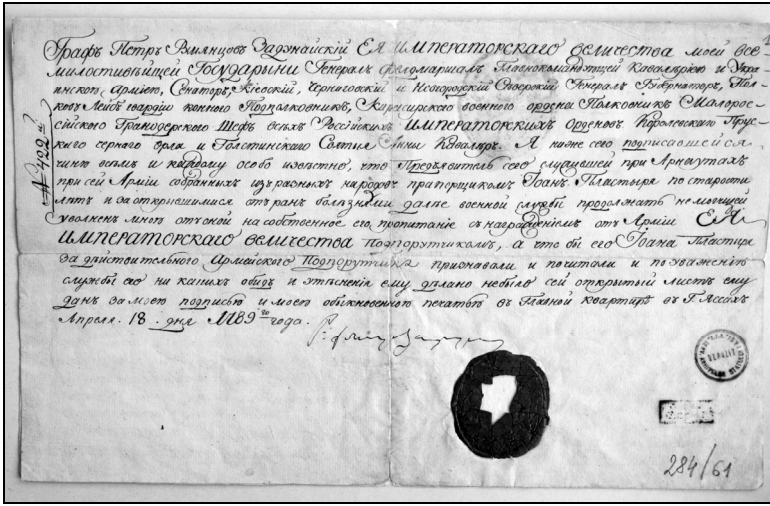 Графъ Петръ Румянцовъ Задунайскій ЕЯ ИМПЕРАТОРСКАГО величества моей все
милостивѣйшей ГОСУДАРИНИ Генералъ фелдмаршалъ Главнокомандующей Кавалерією и Укра-
инскою Армією, Сенаторъ, Кіевскій, Черниговскій и Новгородскій Сѣверскій Генералъ Губернаторъ, Пол-
ковъ Лейбъ гвардіи конного Подполковникъ, Кирасирского военного ордена Полковникъ Малорос-
сійского Гранодерского Шефъ всѣхъ Россійскихъ ИМПЕРАТОРСКИХЪ Орденовъ Королевского Прус-
кого черного орла и Голстинского Святыя Анны Кавалеръ. А ниже сего подписавшейся
чиню всѣмъ и каждому особо извѣстно, что Предъявитель сего служившей при Арнаутахъ
при сей Арміи собранныхъ изъ разныхъ народовъ прапорщикомъ Іоанъ Пластыра по старости
лѣтъ и за открывшимися отъ ранъ болѣзнями далѣе военной службы продолжать не могущей
уволненъ мною отъ оной на собственное его пропитаніе съ награжденіемъ отъ Арміи ЕЯ
ИМПЕРАТОРСКАГО величества Подпорутчикомъ, а что бы его Іоана Пластиру
за дѣйствителного Армейского Подпорутчика признавали и почитали и по уваженію
службы его ни какихъ обидъ и утѣсненія ему дѣлано небыло сей открытый листъ ему
данъ за моею подписью и моею обыкновенною печатью въ Главной квартирѣ въ Г. Яссахъ
Апреля. 18. дня 1789 го года.
№ 422й
284/61